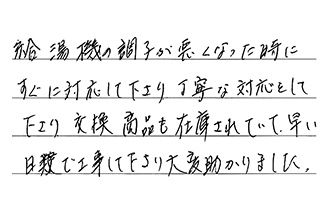 給湯機の調子が悪くなった時に
すぐに対応して下さり丁寧な対応をして
下さり交換商品も在庫されていて、早い
日数で工事して下さり大変助かりました。